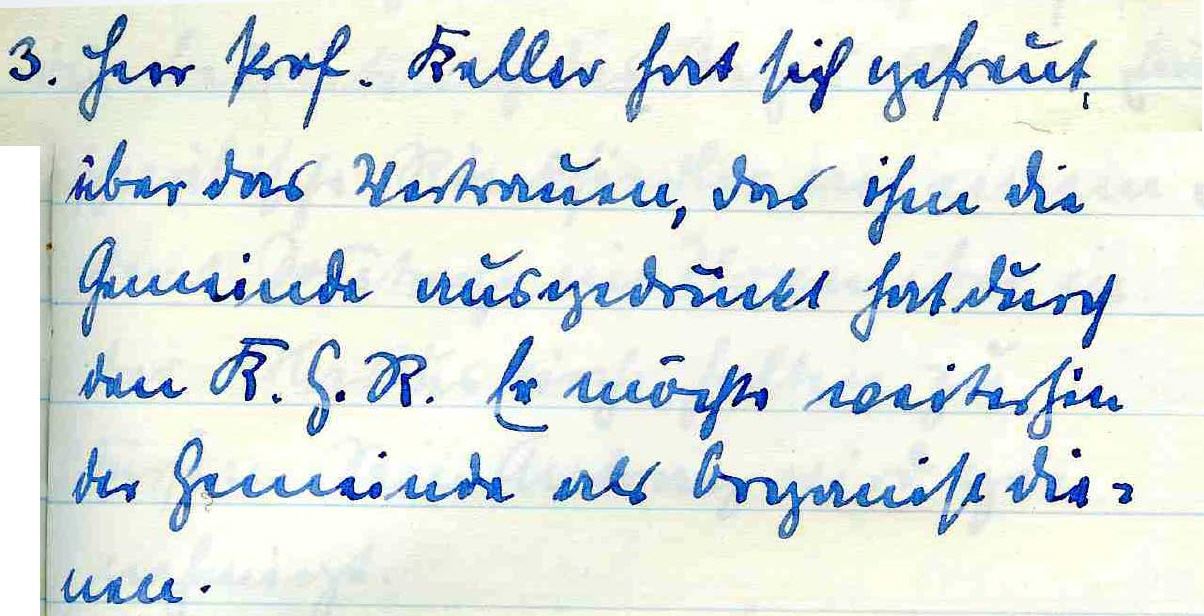 3. Herr Prof. Keller hat sich gefreut,
über das Vertrauen, das ihm die
Gemeinde ausgedrückt hat durch
den K. G. R. Er möchte weiterhin
der Gemeinde als Organist die=
nen.